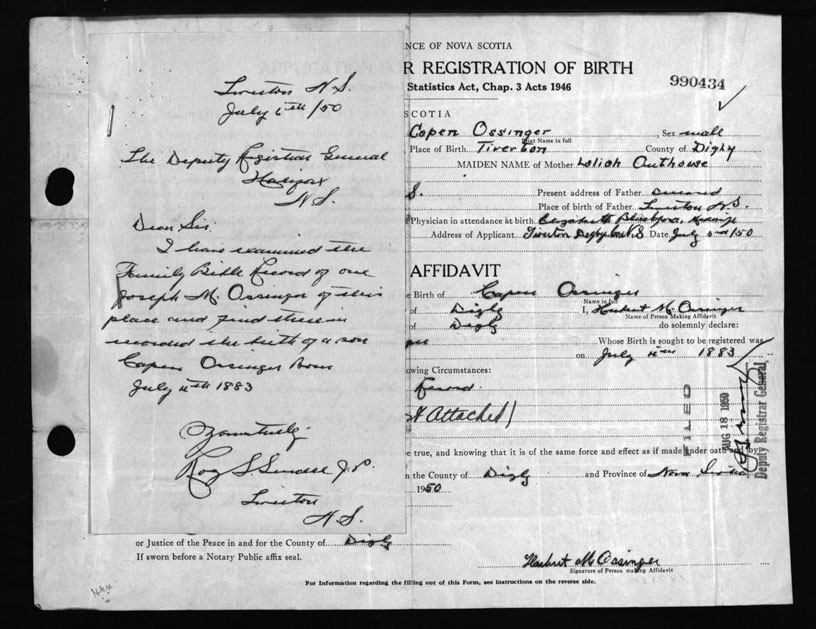 Tiverton N.S.
July 6th/50
The Deputy Registrar General
Halifax
N.S.
Dear Sir.
I have examined the
Family Bible Record of one
Joseph M. Ossinger of this
place and find therein
recorded the birth of a son
Capen Ossinger Born
July 4th 1883
Yours truly
Roy S. J.P.
Tiverton
N.S.
NCE OF NOVA SCOTIA
R REGISTRATION OF BIRTH
990434
Statistics Act, Chap. 3 Acts 1946
SCOTIA
Capen Ossinger, Sex male
Print Name in full
Place of Birth Tiverton County of Digby
MAIDEN NAME of Mother Outhouse
S. Present address of Father
Place of birth of Father Tiverton N.S.
Physician in attendance at birth Elizabeth
Address of Applicant Tiverton Digby N.S Date July 3rd/50
AFFIDAVIT
e Birth of Capen Ossinger
Name in full
of Digby I, Herbert M. Ossinger
Name of Person Making Affidavit
of Digby do solemnly declare:
Whose Birth is sought to be registered was
on July 4th 1883
owing Circumstances:
Record.
Attached)
FILED
AUG 18 1950
Deputy Registrar General
e true, and knowing that it is of the same force and effect as if made under oath and by
n the County of Digby and Province of Nova Scotia
1950
or Justice of the Peace in and for the County of Digby
If sworn before a Notary Public affix seal.
Herbert M Ossinger
Signature of Person making Affidavit
For Information regarding the filling out of this Form, see instructions on the reverse side.